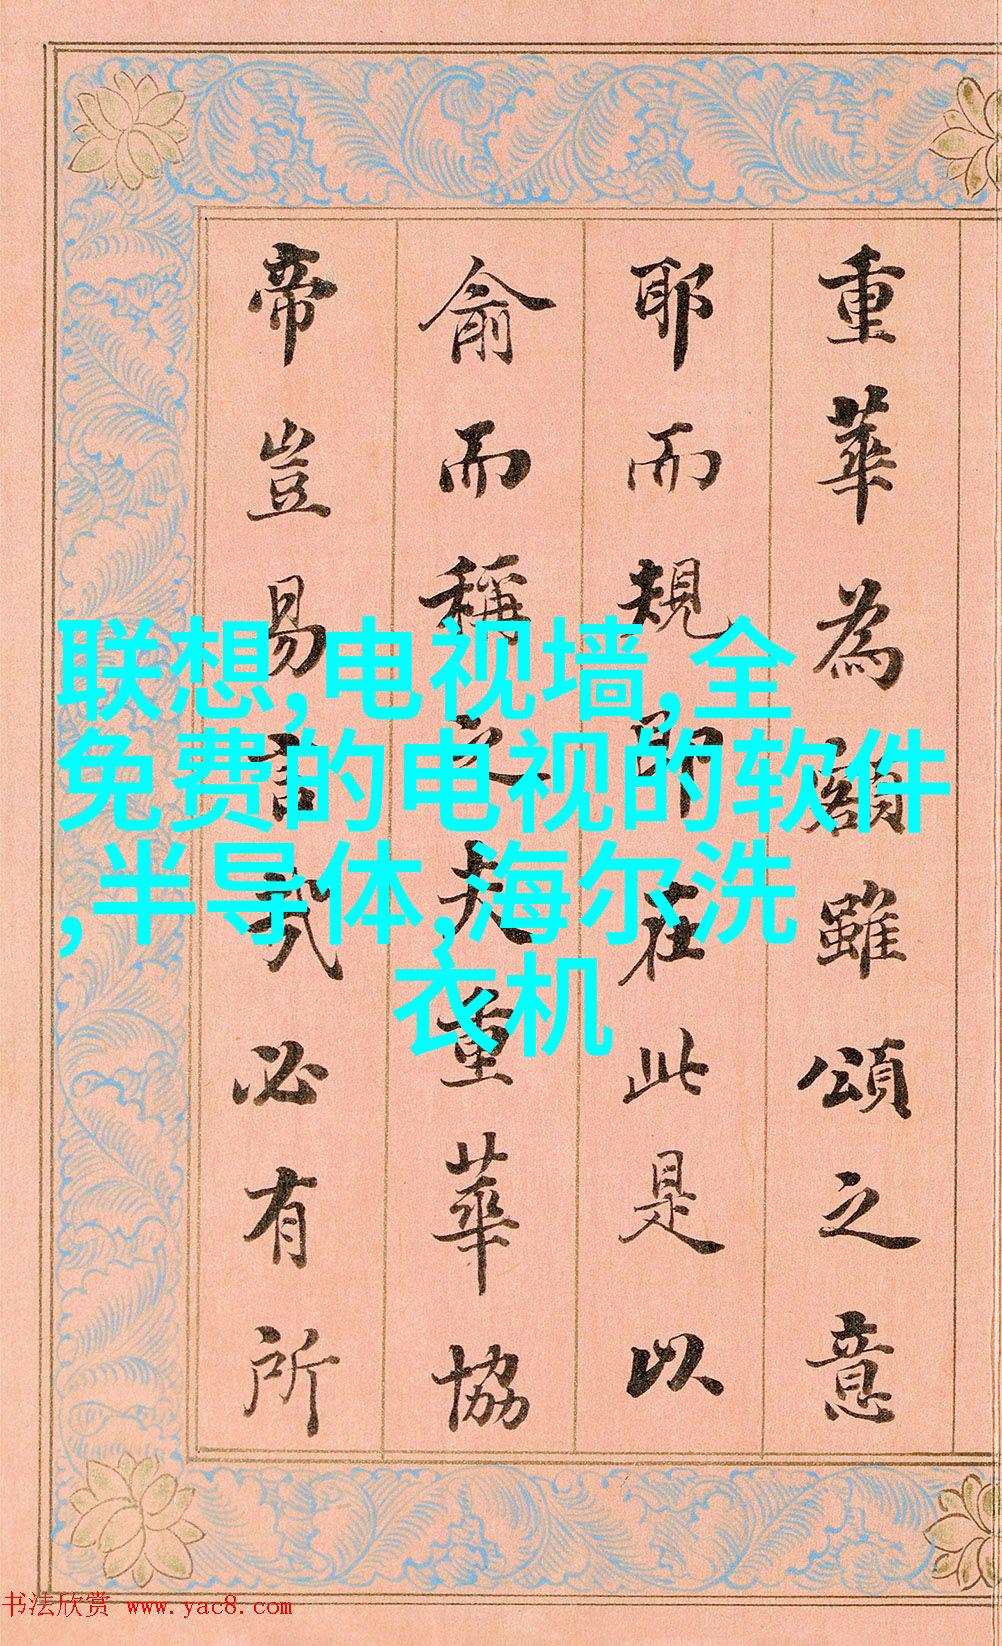 重華為雖頌之意
耶而規即在此是以
俞而稱之夫重華協
帝豈易言哉必有所
联想,电视墙,全
免费的电视的软件
,半导体,海尔洗
衣机
书法欣赏 www.yac8.com